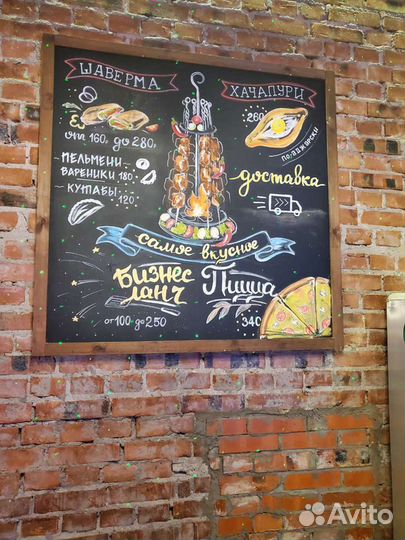 ШАВЕРМА
от 160, до 280,
ПЕЛЬМЕНИ-
ВАРЕНИКИ 180
- КУТАБЫ
120
ХАЧАПУРИ
260
по-аджарски
доставка
самое вкусное
Бизнес
ланч
от 100 до 250
Пицца
340
Avito